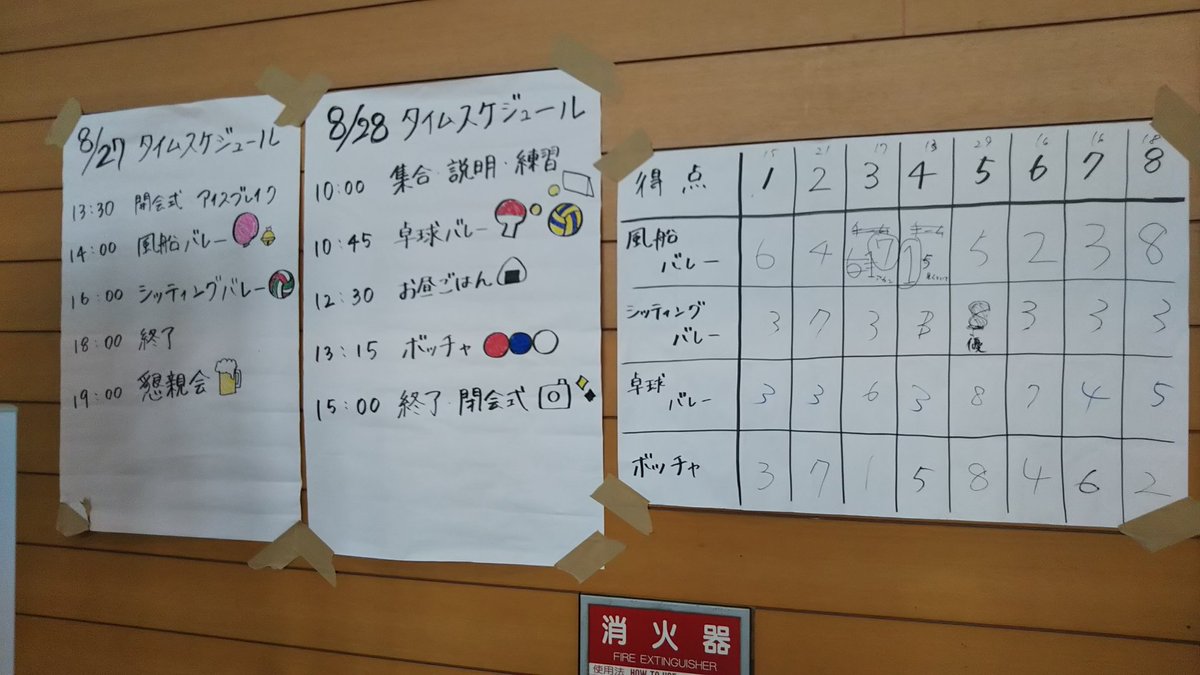 8/27 タイムスケジュール
13:30 開会式 アイスブレイク
14:00 風船バレー
16:00 シッティングバレー
18:00 終了
19:00 懇親会
8/28 タイムスケジュール
10:00 集合・説明・練習
10:45 卓球バレー
12:30 お昼ごはん
13:15 ボッチャ
15:00 終了・閉会式
15 21 17 13 29 16 16 18
得点 1 2 3 4 5 6 7 8
風船 バレー 6 4 7 1 5 2 3 8
シッティング バレー 3 7 3 3 8 3 3 3
優
卓球 バレー 3 3 6 3 8 7 4 5
ボッチャ 3 7 1 5 8 4 6 2
消火器
FIRE EXTINGUISHER
使用法 HOW TO USE